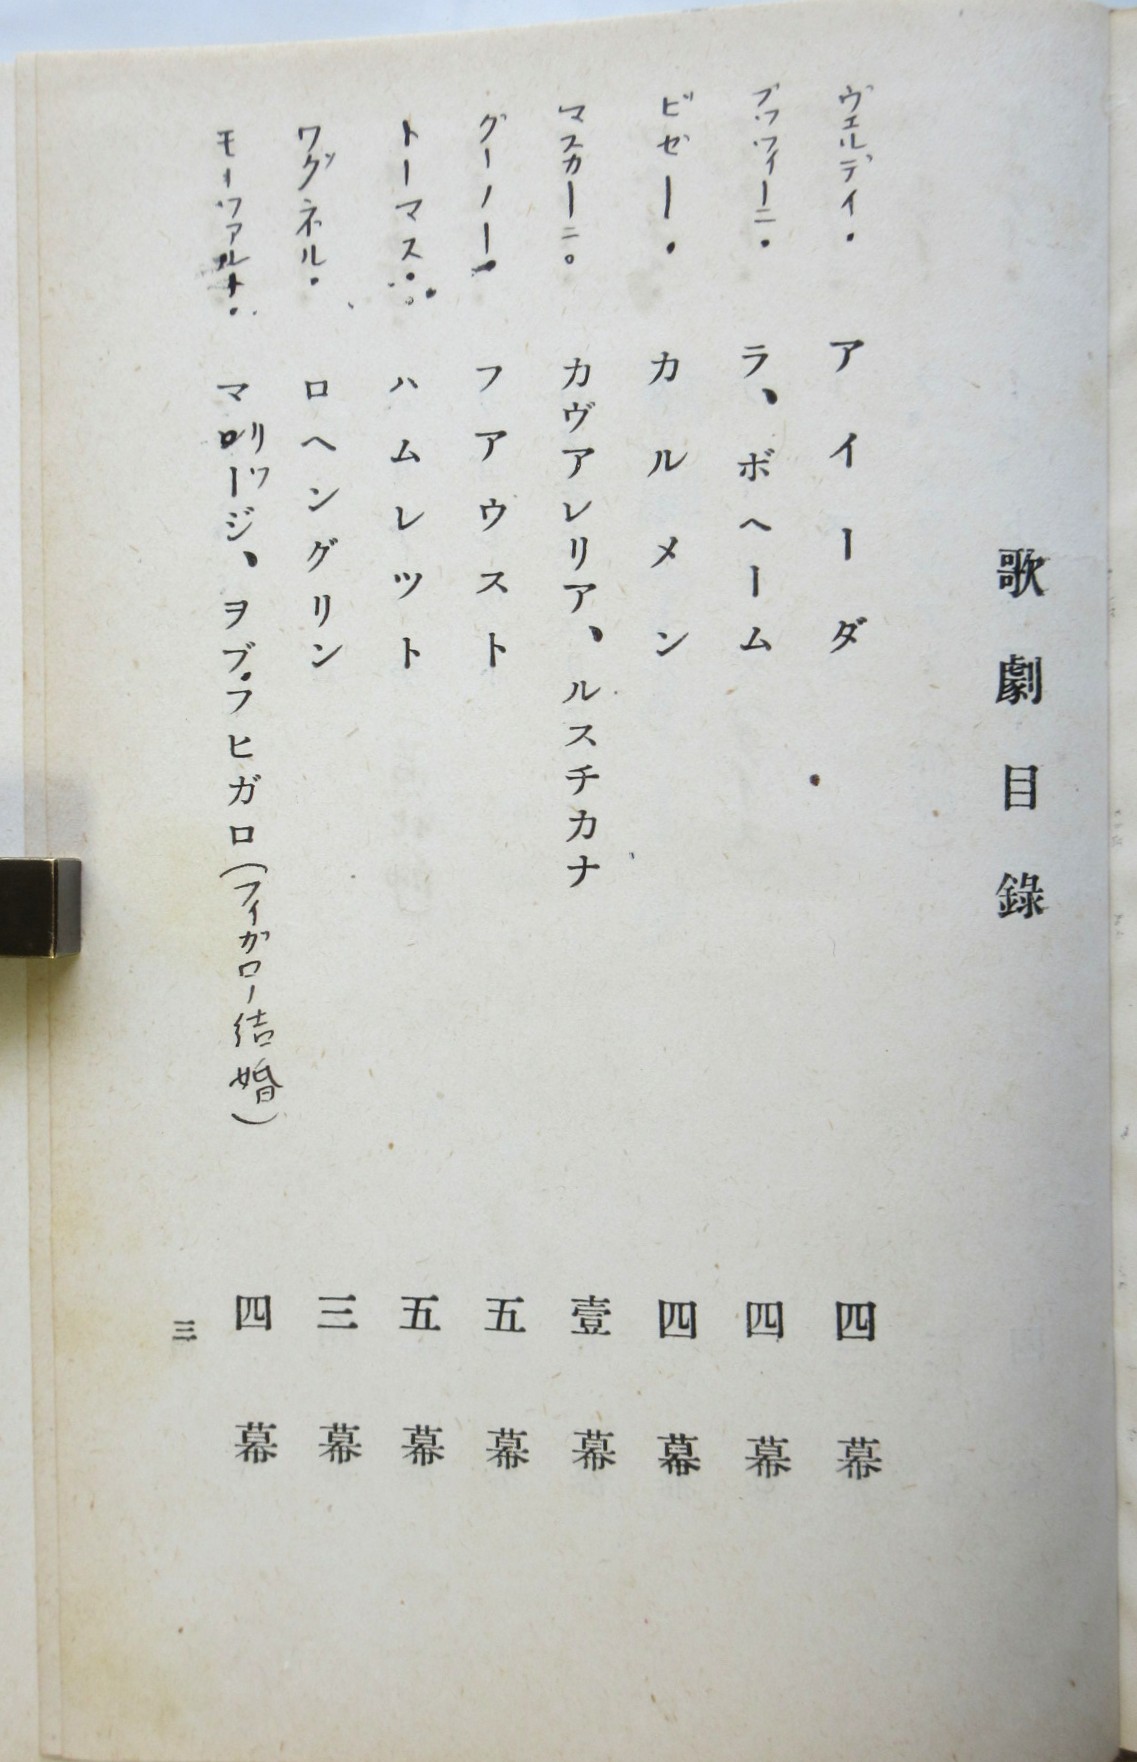 歌劇目錄
ヴェルディ・ アイーダ 四幕
プッツィーニ・ ラ、ボヘーム 四幕
ビゼー・ カルメン 四幕
マスカーニ。 カヴアレリア、ルスチカナ 壹幕
グーノー・ フアウスト 五幕
トーマス・ ハムレツト 五幕
ワグネル・ ロヘングリン 三幕
モーツアルト・ マロージ、ヲブ・フヒガロ(フィガロー結婚) 四幕
リッ
三